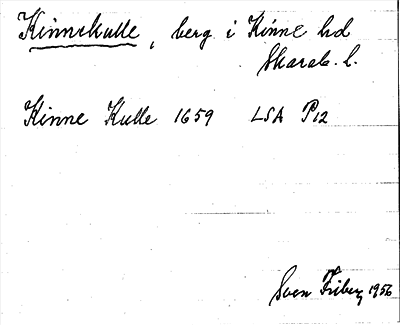 Kinnekulle, berg i Kinne hd
Skarab. l.
Kinne Kulle 1659 LSA P12
Sven Friberg 1956